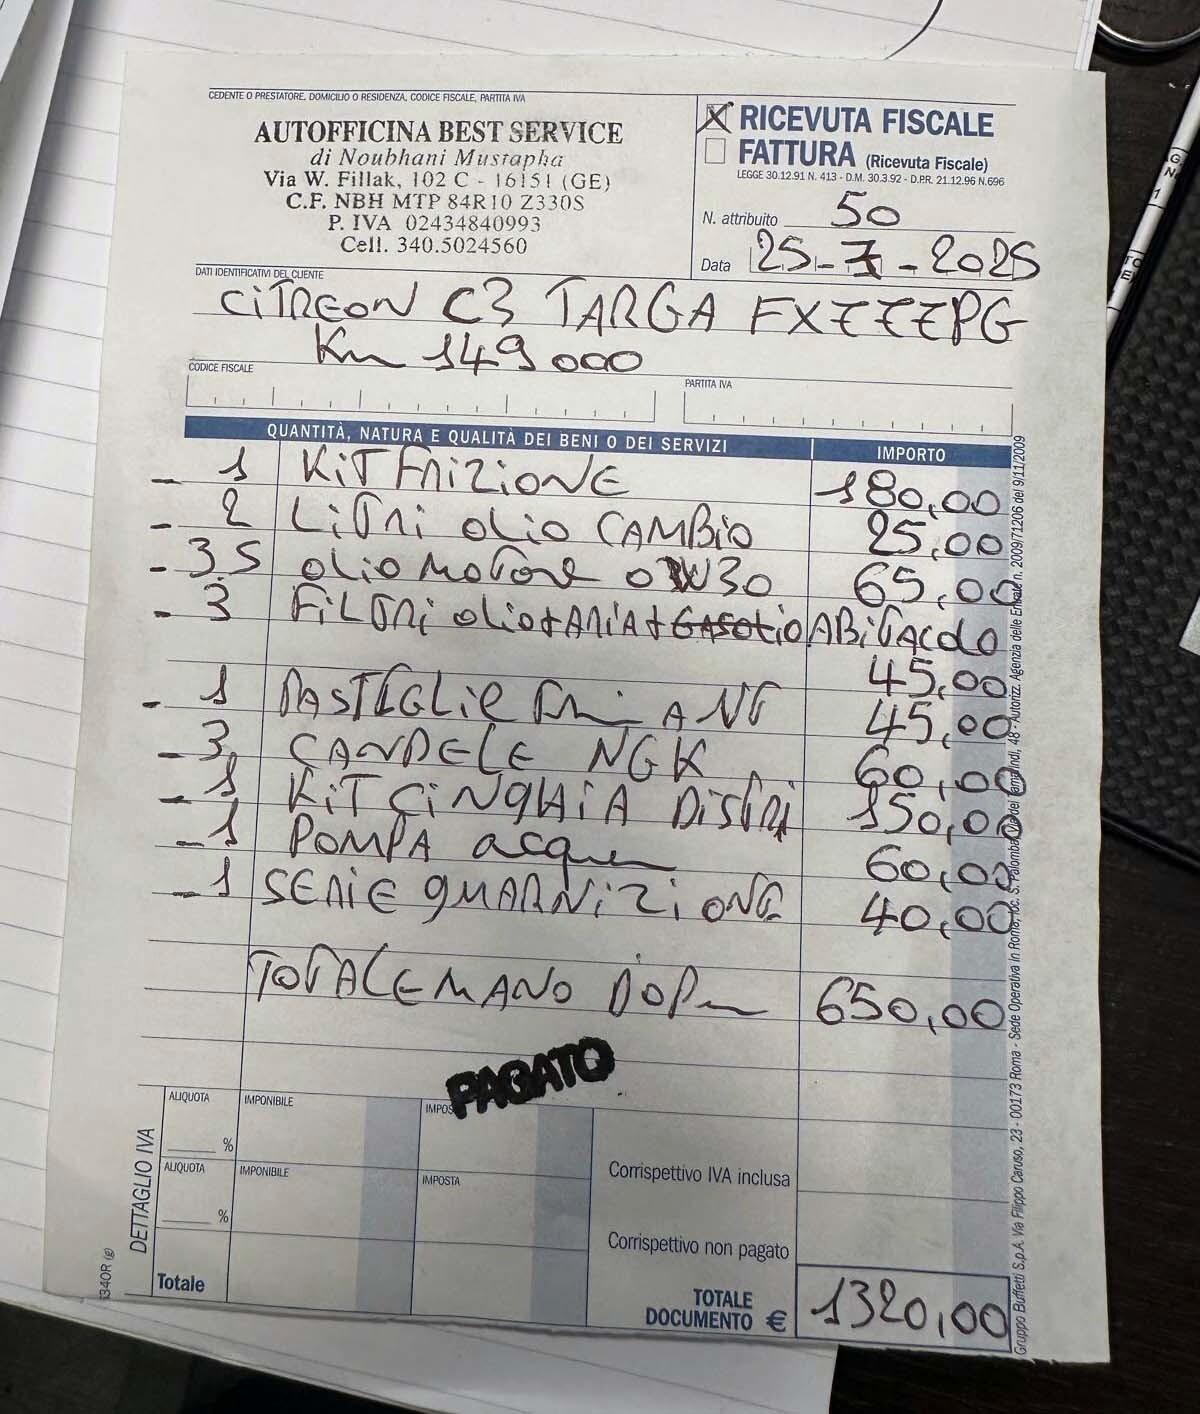 CEDENTE O PRESTATORE, DOMICILIO O RESIDENZA, CODICE FISCALE, PARTITA IVA
AUTOFFICINA BEST SERVICE
di Noubhani Mustapha
Via W. Fillak, 102 C - 16151 (GE)
C.F. NBH MTP 84R10 Z330S
P. IVA 02434840993
Cell. 340.5024560
X RICEVUTA FISCALE
FATTURA (Ricevuta Fiscale)
LEGGE 30.12.91 N. 413 - D.M. 30.3.92 - D.P.R. 21.12.96 N.696
N. attribuito 50
Data 25-7-2025
DATI IDENTIFICATIVI DEL CLIENTE
CITREON C3 TARGA FX777PG
Km 149000
CODICE FISCALE
PARTITA IVA
QUANTITÀ, NATURA E QUALITÀ DEI BENI O DEI SERVIZI IMPORTO
- 1 KIT FRIZIONE 180,00
- 2 LITRI OLIO CAMBIO 25,00
- 3,5 OLIO MOTORE 0W30 65,00
- 3 FILTRI OLIO+ARIA+GASOLIO ABITACOLO
45,00
- 1 PASTIGLIE FRI ANT 45,00
- 3 CANDELE NGK 60,00
- 1 KIT CINGHIA DISTRI 150,00
- 1 POMPA acqua 60,00
- 1 SERIE GUARNIZIONE 40,00
TOTALE MANO DOP 650,00
PAGATO
DETTAGLIO IVA
ALIQUOTA IMPONIBILE IMPOS
%
Corrispettivo IVA inclusa
ALIQUOTA IMPONIBILE IMPOSTA
%
Corrispettivo non pagato
Totale
TOTALE
DOCUMENTO € 1320,00
6340R (g)
Gruppo Buffetti S.p.A. Via Filippo Caruso, 23 - 00173 Roma - Sede Operativa in Roma, loc. S. Palomba, Via dei Tamarindi, 48 - Autorizz. Agenzia delle Entrate n. 2009/71206 del 9/11/2009